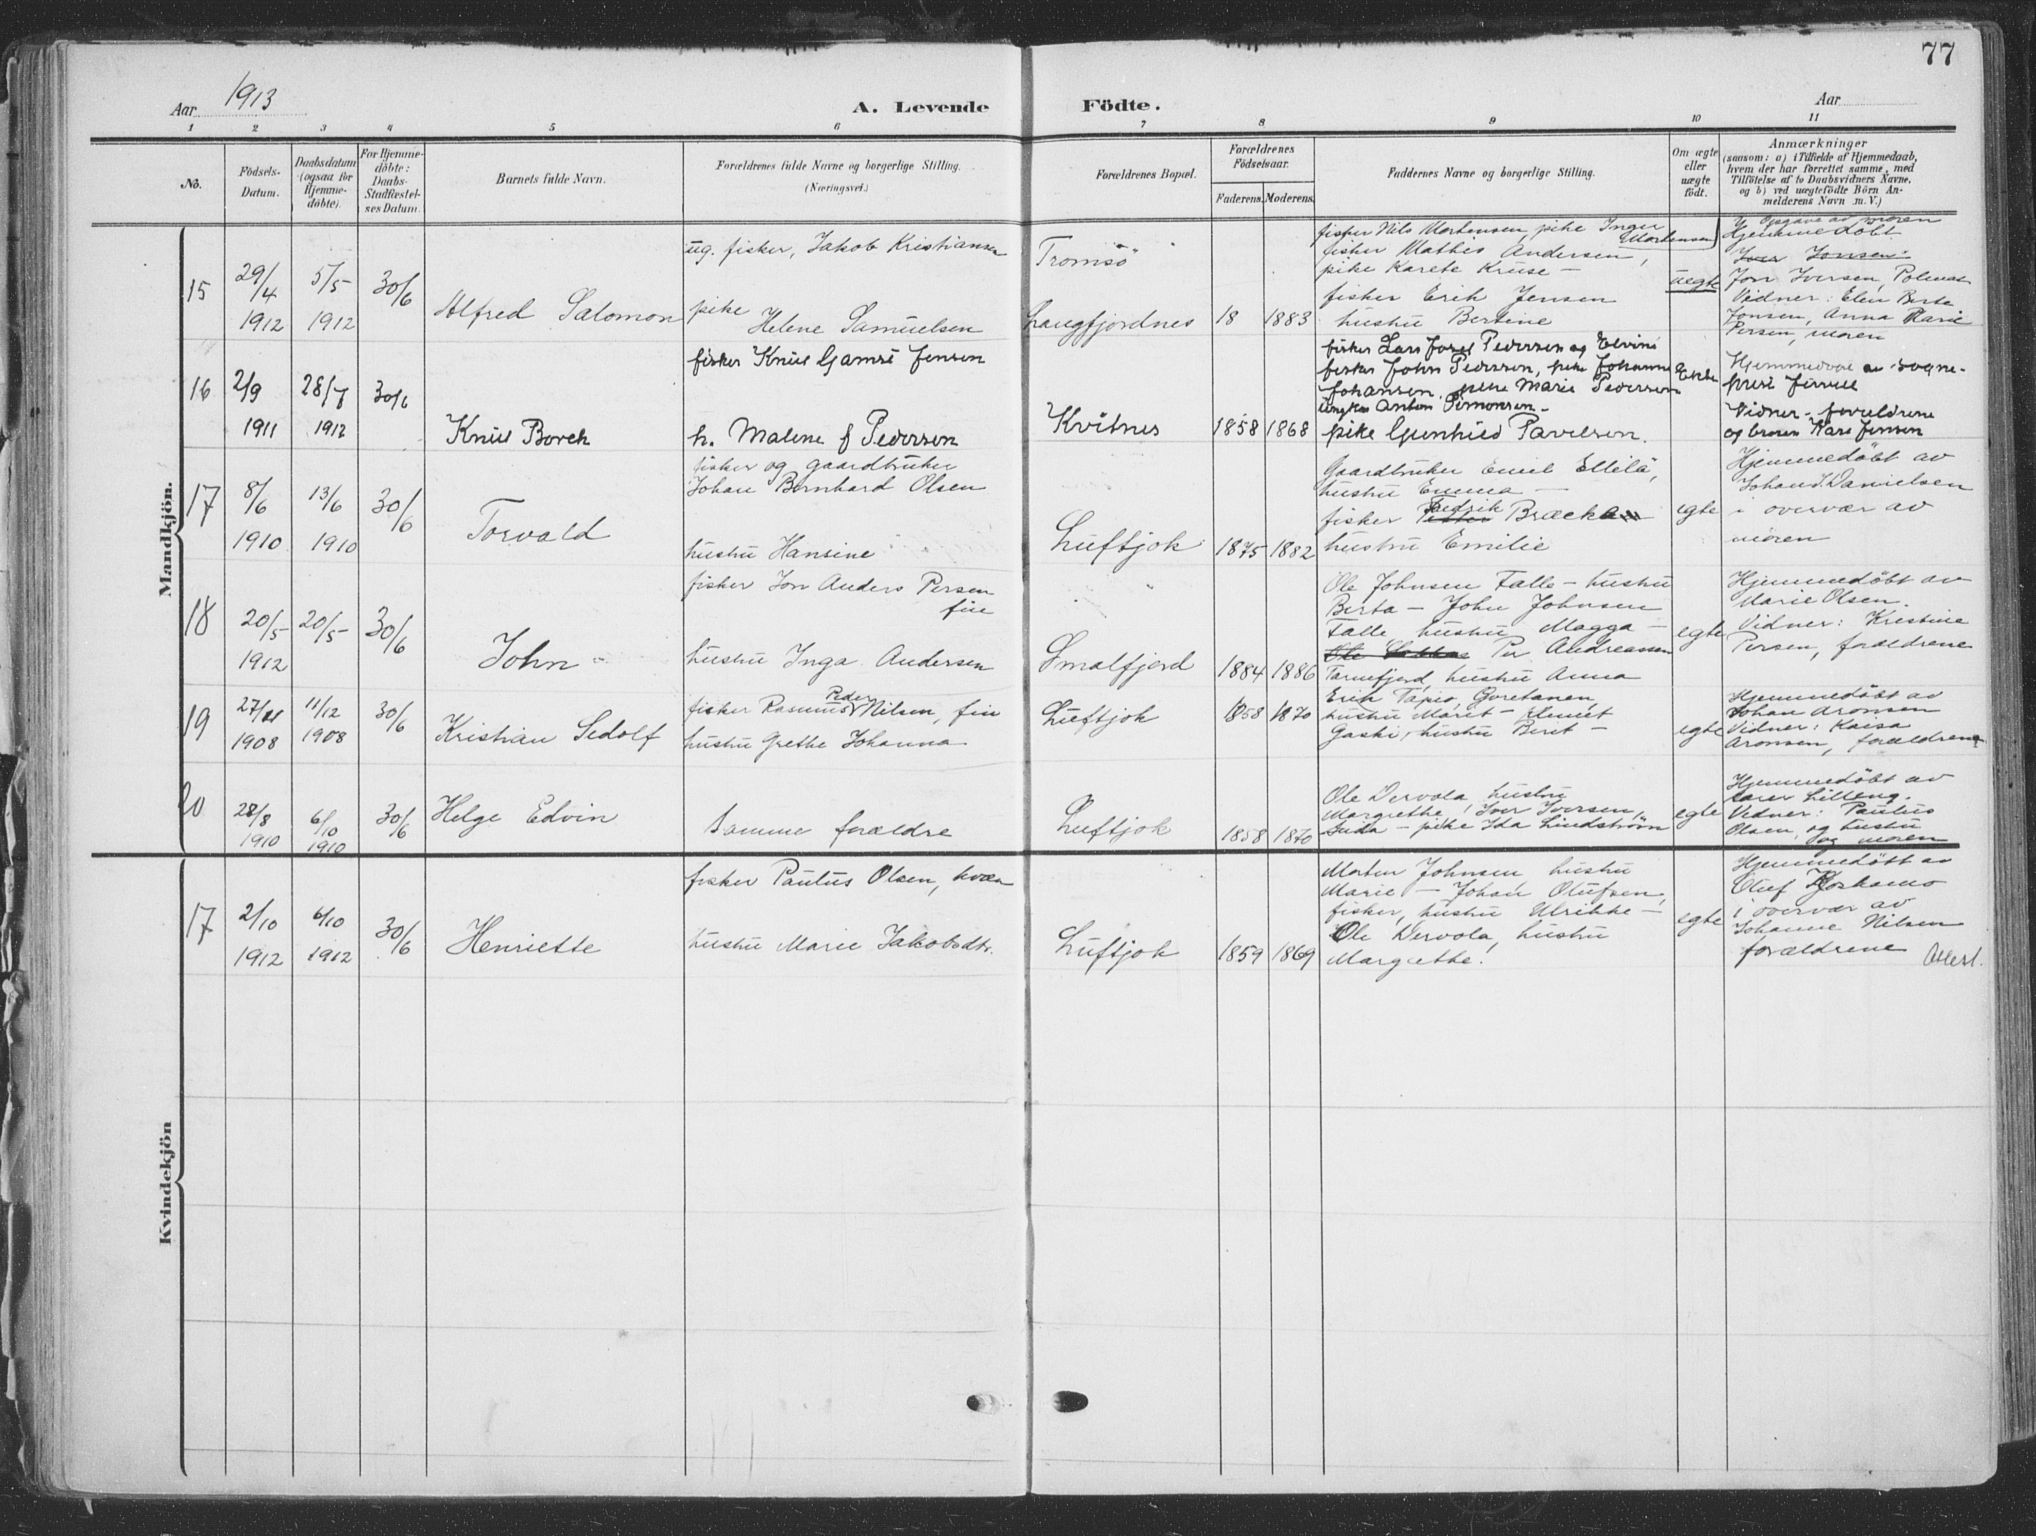 77
Aar 1913
A. Levende
Födte.
Aar
1 2 3 4 5 6 7 8 9 10 11
No.
Födsels-
Datum.
Daabsdatum
(ogsaa for
Hjemme-
döbte).
For Hjemme-
döbte:
Daabs-
Stadfæstel-
ses Datum.
Barnets fulde Navn.
Forældrenes fulde Navne og borgerlige Stilling.
(Næringsvei.)
Forældrenes Bopæl.
Forældrenes
Födselsaar.
Faderens. Moderens.
Faddernes Navne og borgerlige Stilling.
Om ægte
eller
uægte
födt.
Anmærkninger
(saasom: a) i Tilfælde af Hjemmedaab,
hvem der har forrettet samme, med
Tilföielse af to Daabsvidners Navne,
og b) ved uægtefödte Börn An-
melderens Navn m. V.)
Mandkjön.
15
29/4
1912
5/5
1912
30/6
Alfred Salomon
ug. fisker, Jakob Kristiansen
pike
Helene Samuelsen
Tromsö
Langfjordnes
18
1883
fisker Nils Mortensen pike Inger
Mortensen
fisker Mathis Andersen,
pike Karete Kruse –
fisker Erik Jensen
hustru Bertine
uegte
Opgave av moren
Hjemmedöbt
Iver Jonsen
Jon Iversen, Polmak
Vidner: Elen Berte
Jonsen, Anna Marie
Persen, moren
16
2/9
1911
28/7
1912
30/6
Knut Borch
fisker Knut Gamst Jensen
h. Malene f Pedersen
Kvitnes
1858
1868
fisker Lars Josef Pedersen og Elvine
fisker John Pedersen, pike Johanne
Johansen, pike Marie Pedersen
ungkar Anton Simonsen –
pike Gunhild Pavelsen.
Ekte
Hjemmedöpt av sogne-
prest
Vidner – foreldrene
og broren Kare Jensen
17
8/6
1910
13/6
1910
30/6
Torvald
fisker og gaardbruker
Johan Bernhard Olsen
hustru Hansine
Luftjok
1875
1882
Gaardbruker Emil Ellilä,
hustru Emma –
Fredrik
fisker Brækkan
hustru Emilie
egte
Hjemmedöbt av
Johan I. Danielsen
i overvær av
moren
18
20/5
1912
20/5
30/6
John
fisker Jon Anders Persen
fin
hustru Inga Andersen
Smalfjord
1884
1886
Ole Johnsen Falle – hustru
Berta – John Johnsen
Falle hustru Magga –
Ole Per Andreassen
Tarmfjord, hustru Anna
egte
Hjemmedöbt av
Marie Olsen.
Vidner: Kristine
Persen, forældrene
19
27/11
1908
11/12
1908
30/6
Kristian Sedolf
Peder
fisker Rasmus Nilsen, fin
hustru Grethe Johanna
Luftjok
1858
1870
Erik Tapio, Goretanen,
hustru Maret – Klemet
Gaski, hustru Beret –
egte
Hjemmedöbt av
Johan Aronsen
Vidner: Kaisa
Aronsen, forældrene
20
28/8
1910
6/10
1910
30/6
Helge Edvin
Samme forældre
Luftjok
1858
1870
Ole Dervola, hustru
Margrethe, Iver Iversen,
Guda – pike Ida Lindström
egte
Hjemmedöbt av
Lars Lilleng.
Vidner: Paulus
Olsen, og hustru
og moren
Kvindekjön
17
2/10
1912
6/10
1912
30/6
Henriette
fisker Paulus Olsen, kvæn
hustru Marie Jakobsdtr.
Luftjok
1859
1869
Morten Johnsen hustru
Marie – Johan Olufsen,
fisker, hustru Ulrikke –
Ole Dervola, hustru
Margrethe.
egte
Hjemmedöbt av
Oluf Koskamo
i overvær av
Johanne Nilsen
forældrene
Attest.